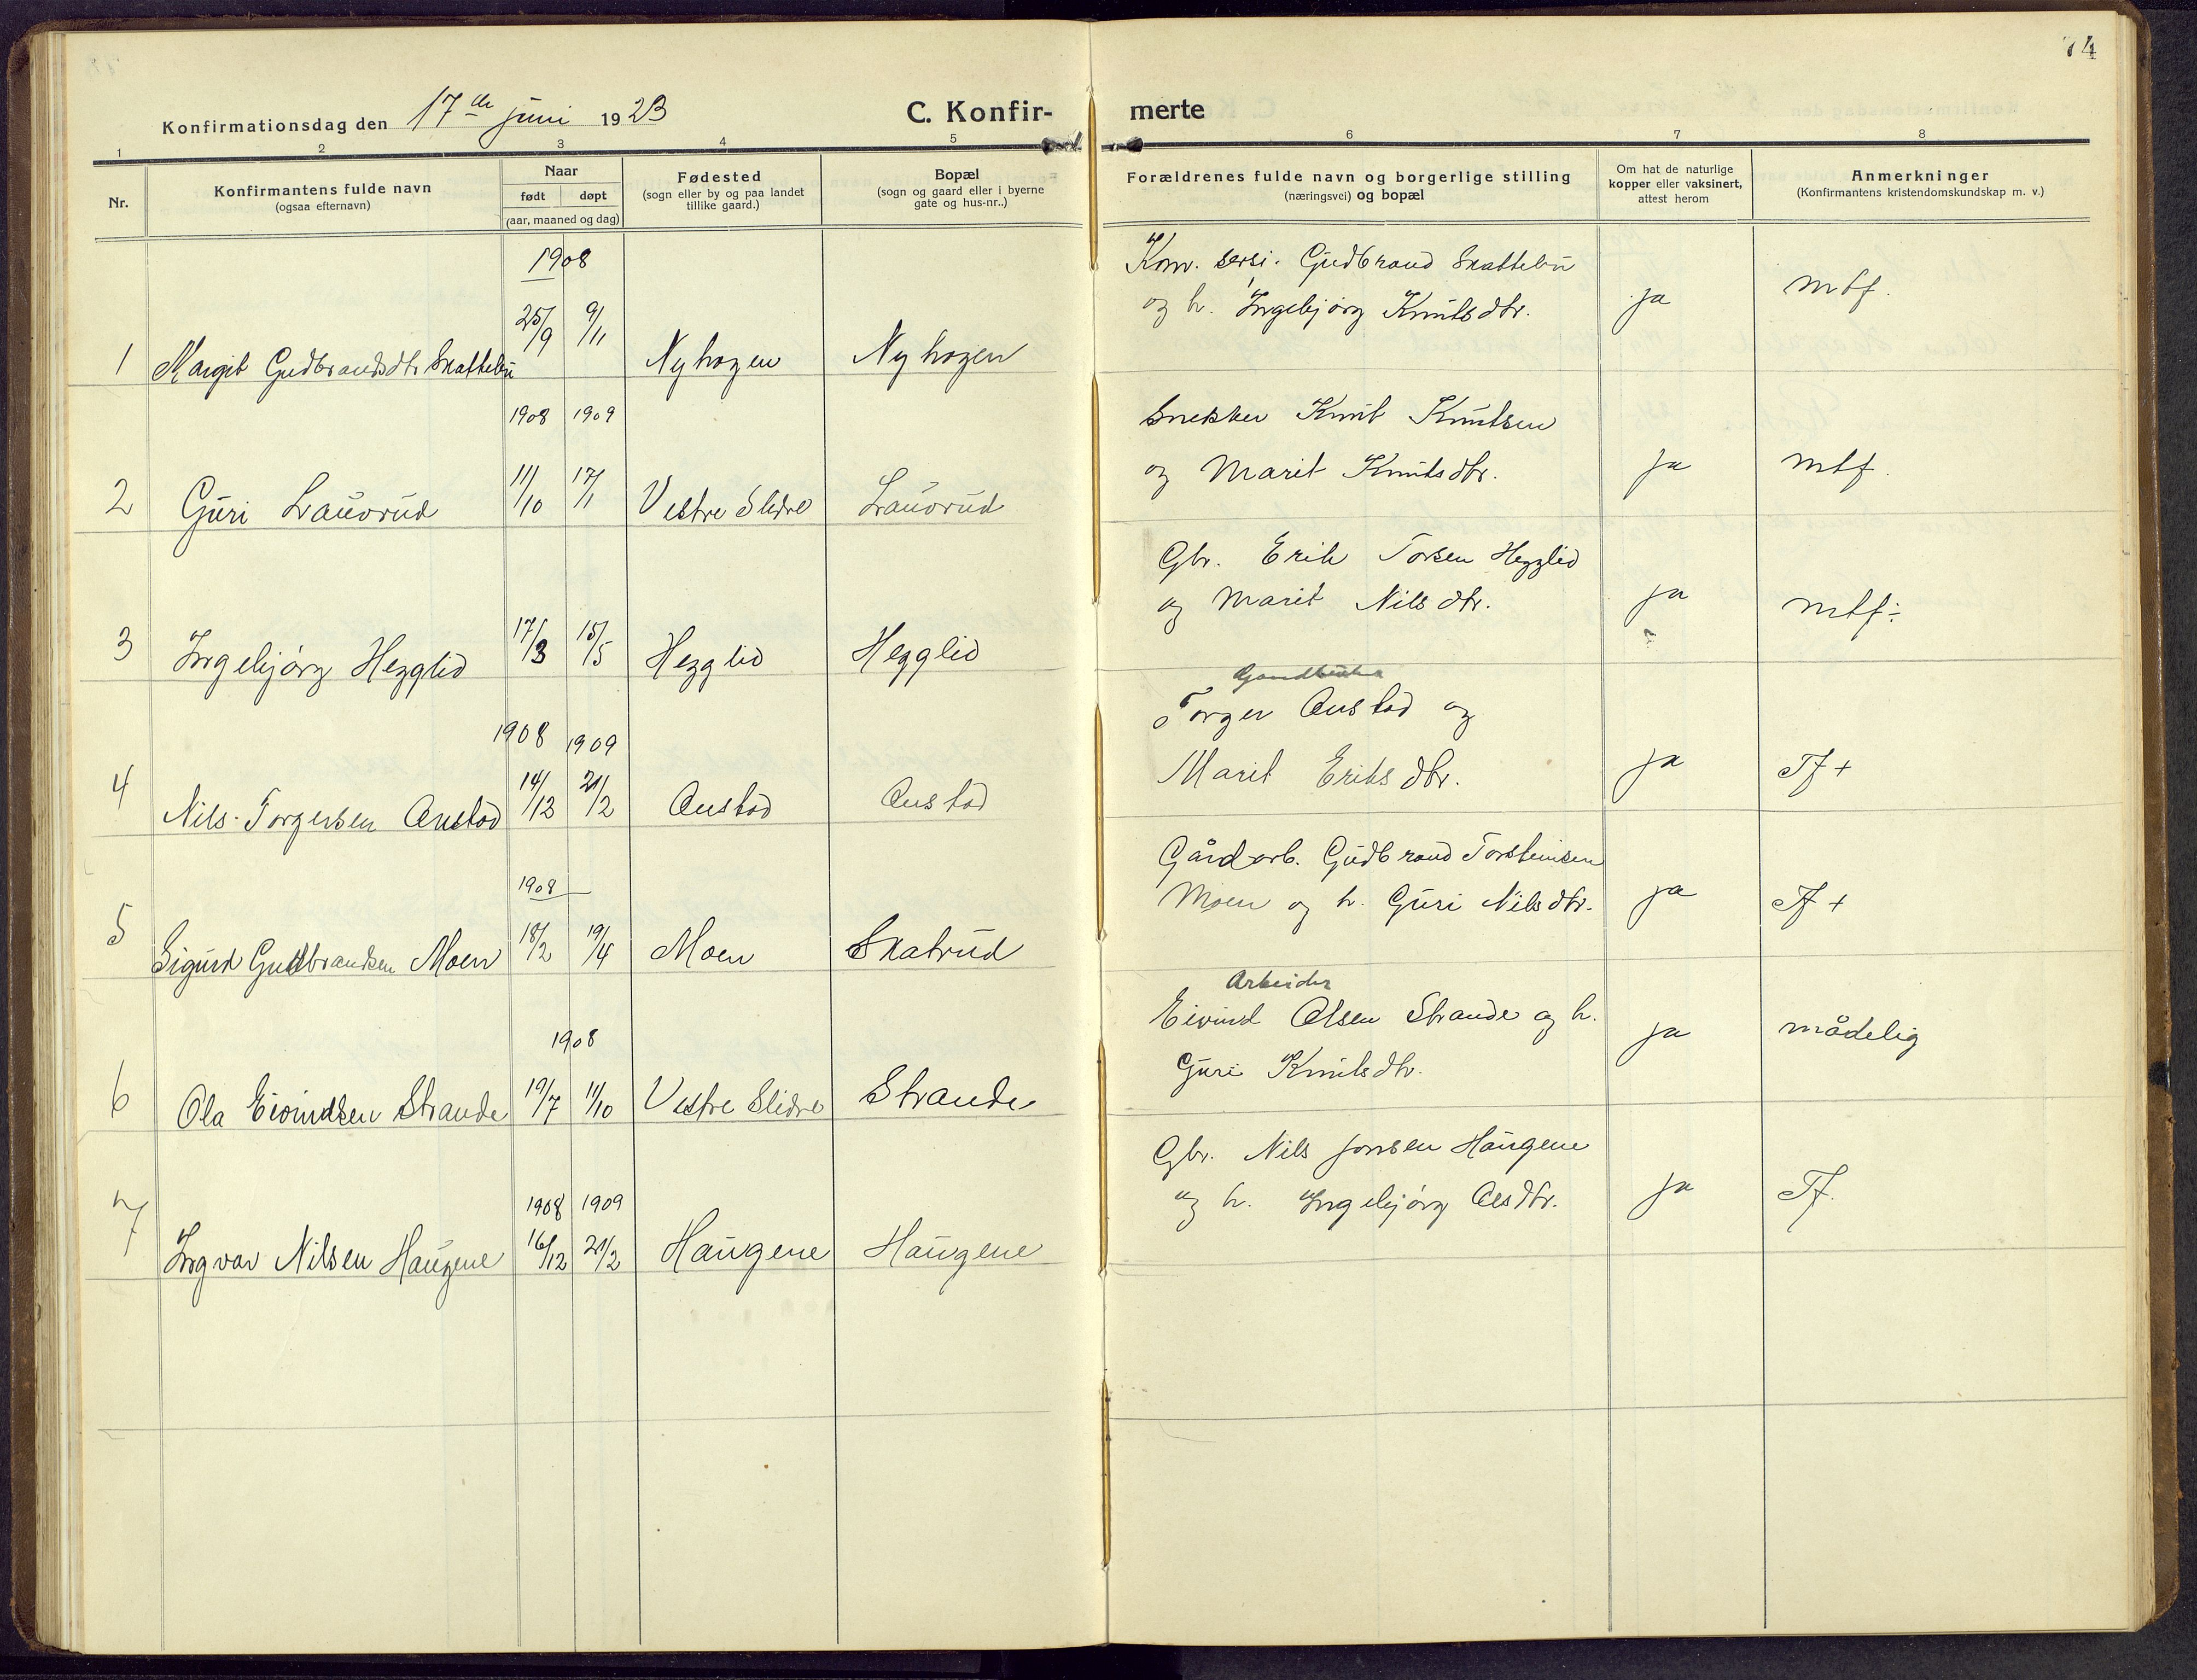 74
Konfirmationsdag den 17de juni 1923
C. Konfir-
merte
1 2 3 4 5 6 7 8
Nr.
Konfirmantens fulde navn
(ogsaa efternavn)
Naar
født døpt
(aar, maaned og dag)
Fødested
(sogn eller by og paa landet
tillike gaard.)
Bopæl
(sogn og gaard eller i byerne
gate og hus-nr..)
Forældrenes fulde navn og borgerlige stilling
(næringsvei) og bopæl
Om hat de naturlige
kopper eller vaksinert,
attest herom
Anmerkninger
(Konfirmantens kristendomskundskap m. v.)
1908
1 Margit Gudbrandsdtr Skattebu 25/9 9/11 Nyhagen Nyhagen
Gudbrand Skattebu
og h. Ingebjørg Knutsdtr.
ja mtf.
1908 1909
2 Guri Lauvrud 11/10 17/1 Vestre Slidre Lauvrud
Snekker Knut Knutsen
og Marit Knutsdtr.
ja mtf.
3 Ingebjørg Hegglid 17/3 15/5 Hegglid Hegglid
Gbr. Erik Torsen Hegglid
og Marit Nilsdtr.
ja mtf÷
1908 1909
4 Nils Torgersen Austad 14/12 21/2 Austad Austad
Gardbruker
Torger Austad og
Marit Eriksdtr.
ja Tf +
1908
5 Sigurd Gudbrandsen Moen 18/2 19/4 Moen Skatrud
Gårdarb. Gudbrand Torsteinsen
Moen og h. Guri Nilsdtr.
ja Tf +
1908
6 Ola Eivindsen Strande 19/7 11/10 Vestre Slidre Strande
Arbeider
Eivind Olsen Strande og h.
Guri Knutsdtr.
ja mådelig
1908 1909
7 Ingvar Nilsen Haugene 16/12 21/2 Haugene Haugene
Gbr. Nils Jonsen Haugene
og h. Ingebjørg Olsdtr.
ja Tf.